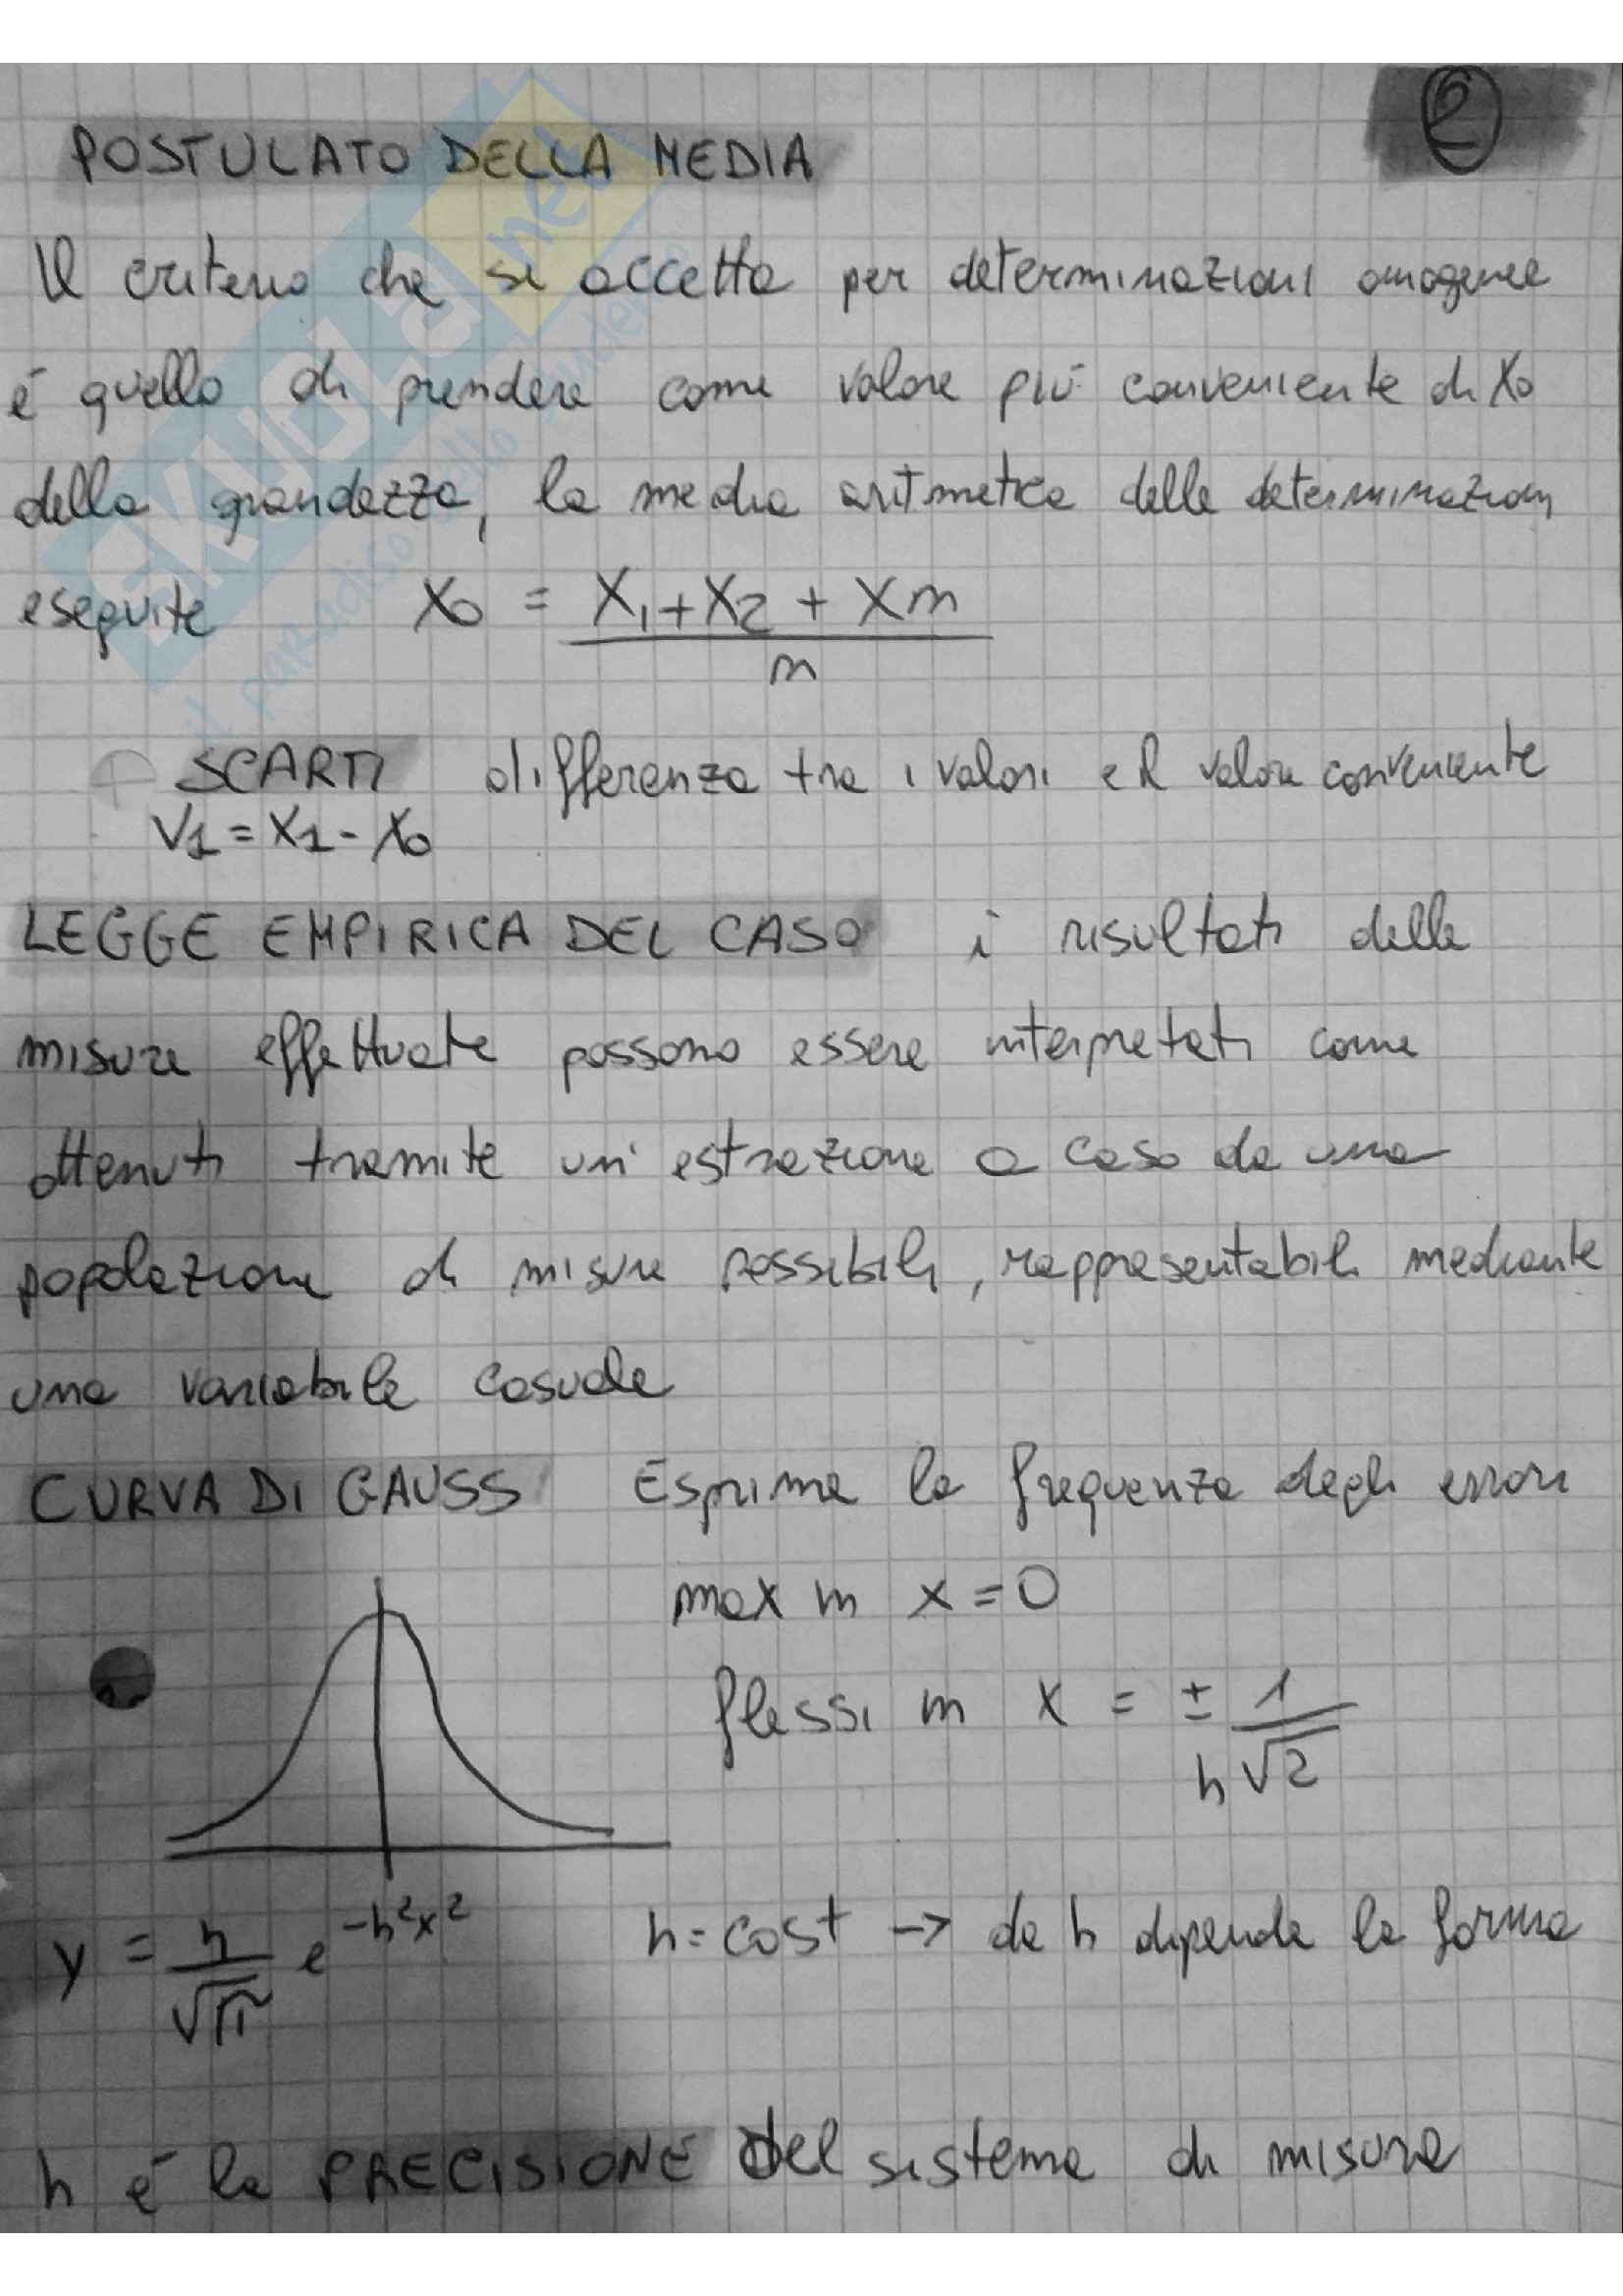 2
POSTULATO DELLA MEDIA
Il criterio che si accetta per determinazioni omogenee
é quello di prendere come valore più conveniente di X₀
della grandezza, la media aritmetica delle determinazioni
eseguite X₀ = X₁+X₂ + Xn / n
SCARTI differenza tra i valori e il valore conveniente
V1 = X1 - X₀
LEGGE EMPIRICA DEL CASO i risultati delle
misure effettuate possono essere interpretati come
ottenuti tramite un' estrazione a caso da una
popolazione di misure possibili, rappresentabili mediante
una variabile casuale
CURVA DI GAUSS Esprime la frequenza degli errori
max in x = 0
flessi in x = ± 1 / h√2
y = h/√π e^-h²x² h = cost -> da h dipende la forma
h é la PRECISIONE del sistema di misura
SKUOLA.net
il paradiso dello studente